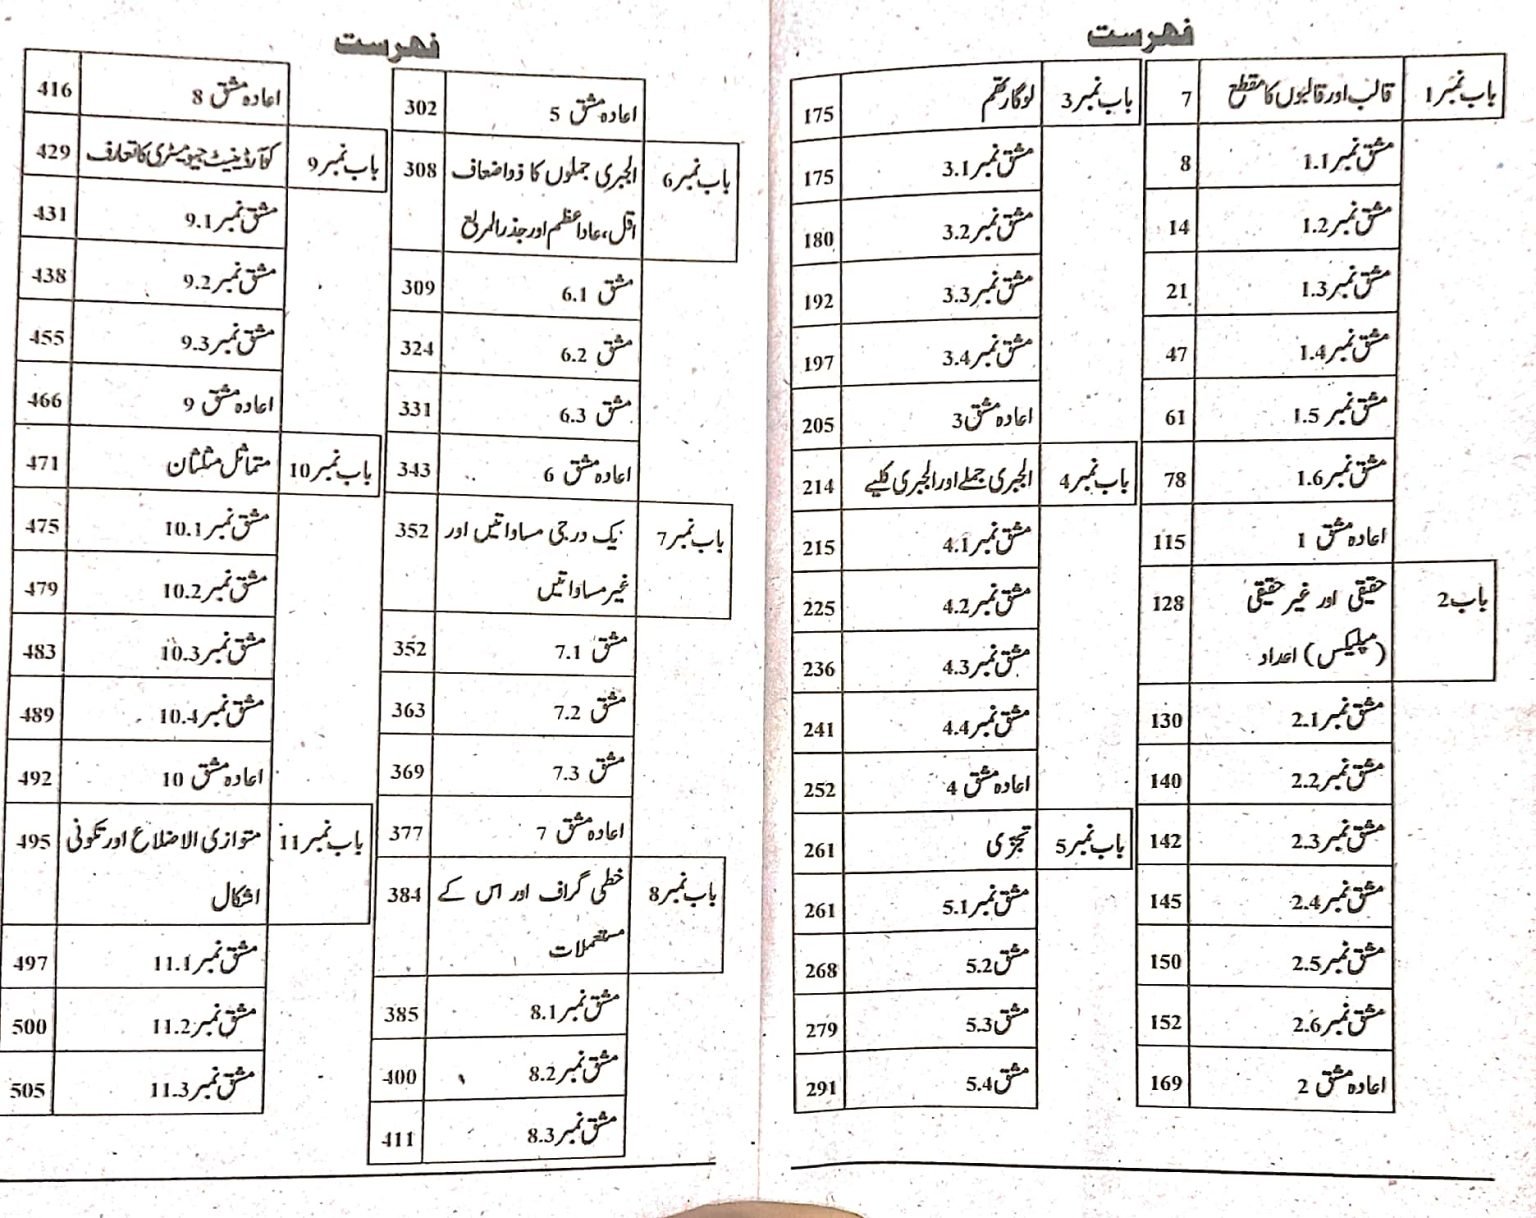 فہرست
باب نمبر 1 قالب اور قالبوں کا مقطع 7
مشق نمبر 1.1 8
مشق نمبر 1.2 14
مشق نمبر 1.3 21
مشق نمبر 1.4 47
مشق نمبر 1.5 61
مشق نمبر 1.6 78
اعادہ مشق 1 115
باب 2 حقیقی اور غیر حقیقی 128
(کمپلیکس) اعداد
مشق نمبر 2.1 130
مشق نمبر 2.2 140
مشق نمبر 2.3 142
مشق نمبر 2.4 145
مشق نمبر 2.5 150
مشق نمبر 2.6 152
اعادہ مشق 2 169
باب نمبر 3 لوگارتھم 175
مشق نمبر 3.1 175
مشق نمبر 3.2 180
مشق نمبر 3.3 192
مشق نمبر 3.4 197
اعادہ مشق 3 205
باب نمبر 4 الجبری جملے اور الجبری کلیے 214
مشق نمبر 4.1 215
مشق نمبر 4.2 225
مشق نمبر 4.3 236
مشق نمبر 4.4 241
اعادہ مشق 4 252
باب نمبر 5 تجزی 261
مشق نمبر 5.1 261
مشق 5.2 268
مشق 5.3 279
مشق 5.4 291
فہرست
اعادہ مشق 5 302
باب نمبر 6 الجبری جملوں کا ذواضعاف 308
اقل، عاداعظم اور جذرالمربع
مشق 6.1 309
مشق 6.2 324
مشق 6.3 331
اعادہ مشق 6 343
باب نمبر 7 یک درجی مساواتیں اور 352
غیر مساواتیں
مشق 7.1 352
مشق 7.2 363
مشق 7.3 369
اعادہ مشق 7 377
باب نمبر 8 خطی گراف اور اس کے 384
مستعملات
مشق نمبر 8.1 385
مشق نمبر 8.2 400
مشق نمبر 8.3 411
اعادہ مشق 8 416
باب نمبر 9 کوآرڈینیٹ جیومیٹری کا تعارف 429
مشق نمبر 9.1 431
مشق نمبر 9.2 438
مشق نمبر 9.3 455
اعادہ مشق 9 466
باب نمبر 10 متماثل مثلثان 471
مشق نمبر 10.1 475
مشق نمبر 10.2 479
مشق نمبر 10.3 483
مشق نمبر 10.4 489
اعادہ مشق 10 492
باب نمبر 11 متوازی الاضلاع اور تکونی 495
اشکال
مشق نمبر 11.1 497
مشق نمبر 11.2 500
مشق نمبر 11.3 505